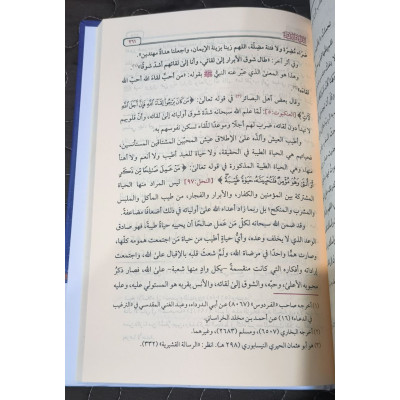 ٢٩١
ضراء مُضِرَّة ولا فتنة مضِلَّة، اللهم زينا بزينة الإيمان، واجعلنا هداة مهتدين».
وفي أثر آخر: «طال شوق الأبرار إلى لقائي، وأنا إلى لقائهم أشدُّ شوقًا».
وهذا هو المعنى الذي عبر عنه النبي ﷺ بقوله: «من أحبَّ لقاء الله أحبَّ الله
لقاءه»
وقال بعض أهل البصائر في قوله تعالى: ﴿مَن كَانَ يَرْجُوا لِقَاءَ اللَّهِ فَإِنَّ أَجَلَ اللَّهِ
لَآتٍ﴾ [العنكبوت: ٥]: لما علم الله سبحانه شدَّة شوق أوليائه إلى لقائه، وأنَّ قلوبهم
لا تهدأ دون لقائه، ضرب لهم أجلًا وموعدًا للقائه تسكن نفوسهم به.
وأطيب العيش وألذُّه على الإطلاق عيش المحبين المشتاقين المستأنسين،
فحياتهم هي الحياة الطيبة في الحقيقة، ولا حياة للعبد أطيب ولا أنعم ولا أهنأ
منها، وهي الحياة الطيبة المذكورة في قوله تعالى: ﴿مَنْ عَمِلَ صَالِحًا مِّن ذَكَرٍ
أَوْ أُنثَى وَهُوَ مُؤْمِنٌ فَلَنُحْيِيَنَّهُ حَيَاةً طَيِّبَةً﴾ [النحل: ٩٧] ليس المراد منها الحياة
المشتركة بين المؤمنين والكفار، والأبرار والفجار، من طيب المأكل والملبس
والمشرب والمنكح؛ بل ربما زاد أعداء الله على أوليائه في ذلك أضعافًا مضاعفة.
وقد ضمن الله سبحانه لكلِّ من عمل صالحًا أن يحييه حياة طيبة، فهو صادق
الوعد الذي لا يخلف وعده، وأيُّ حياةٍ أطيب من حياة من اجتمعت همومه كلُّها،
وصارت همًّا واحدًا في مرضاة الله، ولَمَّ شعث قلبه بالإقبال على الله، واجتمعت
إراداته وأفكاره التي كانت منقسمةً -بكل وادٍ منها شعبة- على الله، فصار ذكرُ
محبوبه الأعلى، وحبُّه، والشوق إلى لقائه، والأنس بقربه هو المستولي عليه، وعليه
(١) أخرجه صاحب «الفردوس» (٨٠٦٧) عن أبي الدرداء، وعبد الغني المقدسي في «الترغيب
في الدعاء» (٦٦) عن أحمد بن مخلد الخراساني.
(٢) أخرجه البخاري (٦٥٠٧)، ومسلم (٢٦٨٣)، وغيرهما.
(٣) هو أبو عثمان الحيري النيسابوري (٢٩٨ هـ). انظر: «الرسالة القشيرية» (٣٣٢)